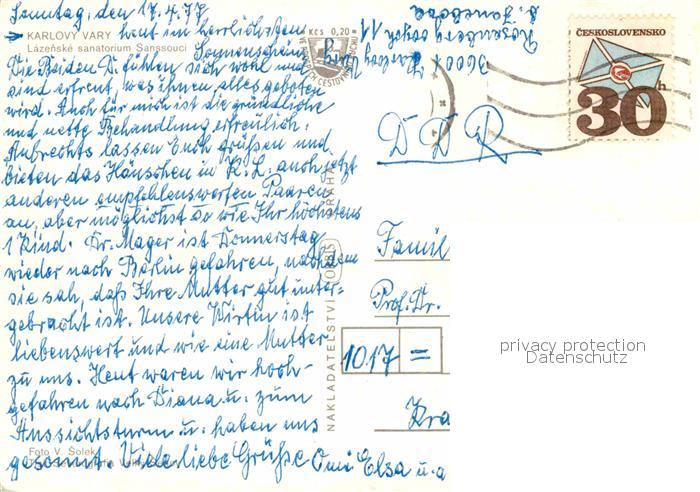 Sonntag, den 17.4.77
KARLOVY VARY heut im herrlichsten
Lázeňské sanatorium Sanssouci Sonnenschein
Die Beiden D. fühlen sich wohl und
sind erfreut, was ihnen alles geboten
wird. Auch für mich ist die gründliche
und nette Behandlung erfreulich.
Aubrechts lassen Euch grüßen und
bieten das Häuschen in K.L. auch jetzt
anderen empfehlenswerten Paaren
an, aber möglichst so wie Ihr höchstens
1 Kind. Dr. Mager ist Donnerstag
wieder nach Berlin gefahren, nachdem
sie sah, daß Ihre Mutter gut unter-
gebracht ist. Unsere Wirtin ist
liebenswert und wie eine Mutter
zu uns. Heut waren wir hoch-
gefahren nach Diana u. zum
Aussichtsturm u. haben uns
Foto V. Šolek
gesonnt. Viele liebe Grüße Omi Elsa u. a
Kčs 0,20
NAKLADATELSTVÍ ORBIS PRAHA
36001 Karlovy Vary
ČESKOSLOVENSKO
30h
DDR
Famil
Prof. Dr.
1017 =
Kra
privacy protection
Datenschutz